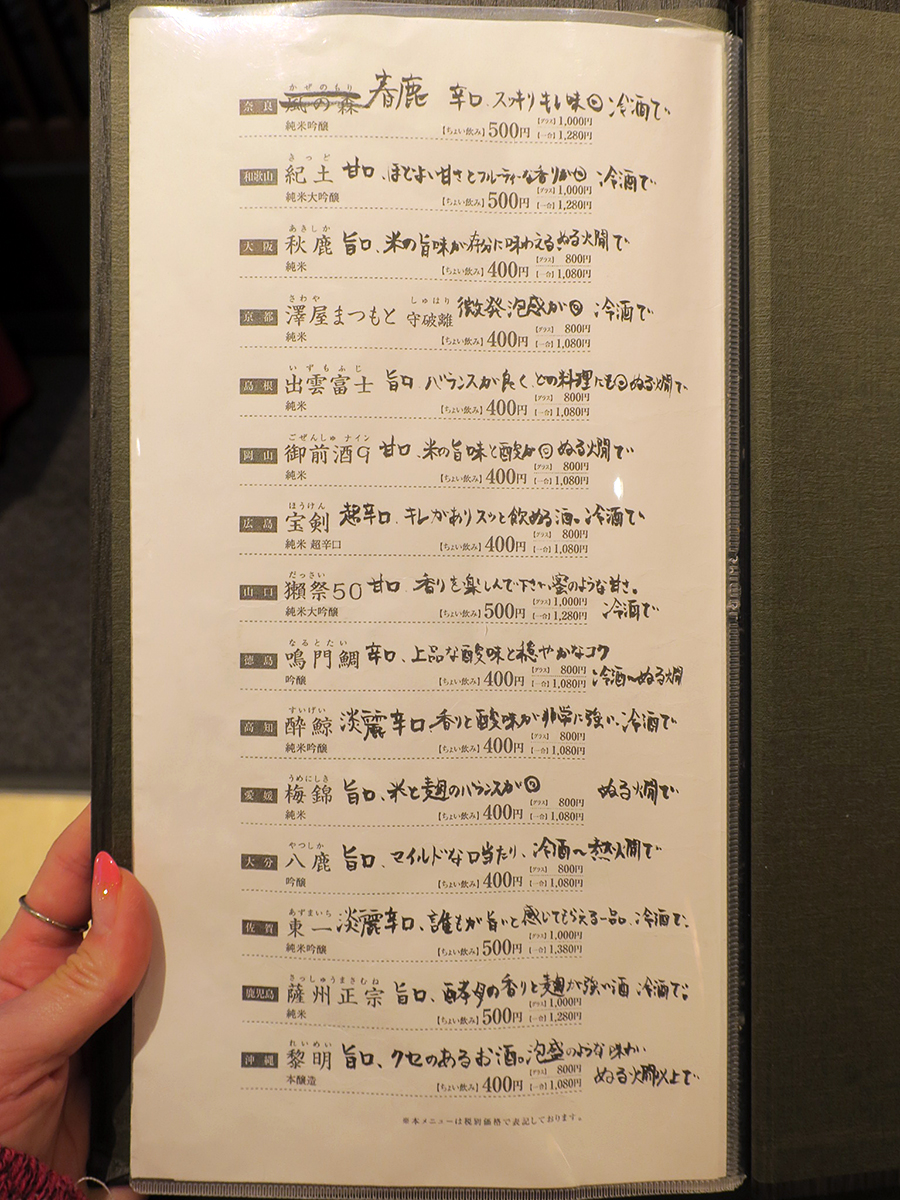 かぜのもり
奈良 風の森 春鹿 辛口、スッキリキレ味◎ 冷酒で
純米吟醸 【ちょい飲み】500円 【グラス】1,000円 【一合】1,280円
きっど
和歌山 紀土 甘口、ほどよい甘さとフルーティーな香りが◎ 冷酒で
純米大吟醸 【ちょい飲み】500円 【グラス】1,000円 【一合】1,280円
あきしか
大阪 秋鹿 旨口、米の旨味が存分に味わえる ぬる燗で
純米 【ちょい飲み】400円 【グラス】800円 【一合】1,080円
さわや しゅはり
京都 澤屋まつもと 守破離 微発泡感が◎ 冷酒で
純米 【ちょい飲み】400円 【グラス】800円 【一合】1,080円
いずもふじ
島根 出雲富士 旨口 バランスが良く、どの料理にも◎ ぬる燗で
純米 【ちょい飲み】400円 【グラス】800円 【一合】1,080円
ごぜんしゅ ナイン
岡山 御前酒9 甘口、米の旨味と酸が◎ ぬる燗で
純米 【ちょい飲み】400円 【グラス】800円 【一合】1,080円
ほうけん
広島 宝剣 超辛口、キレがありスッと飲める酒。冷酒で
純米 超辛口 【ちょい飲み】400円 【グラス】800円 【一合】1,080円
だっさい
山口 獺祭50 甘口、香りを楽しんで下さい蜜のような甘さ。
純米大吟醸 【ちょい飲み】500円 【グラス】1,000円 【一合】1,280円 冷酒で
なるとたい
徳島 鳴門鯛 辛口、上品な酸味と穏やかなコク
吟醸 【ちょい飲み】400円 【グラス】800円 【一合】1,080円 冷酒〜ぬる燗
すいげい
高知 酔鯨 淡麗辛口、香りと酸味が非常に強い、冷酒で
純米吟醸 【ちょい飲み】400円 【グラス】800円 【一合】1,080円
うめにしき
愛媛 梅錦 旨口、米と麹のバランスが◎ ぬる燗で
純米 【ちょい飲み】400円 【グラス】800円 【一合】1,080円
やつしか
大分 八鹿 旨口、マイルドな口当たり、冷酒〜熱燗で
吟醸 【ちょい飲み】400円 【グラス】800円 【一合】1,080円
あずまいち
佐賀 東一 淡麗辛口、誰もが旨いと感じてもらえる一品。冷酒で。
純米吟醸 【ちょい飲み】500円 【グラス】1,000円 【一合】1,380円
さっしゅうまさむね
鹿児島 薩州正宗 旨口、酵母の香りと麹が強い酒 冷酒で。
純米 【ちょい飲み】500円 【グラス】1,000円 【一合】1,280円
れいめい
沖縄 黎明 旨口、クセのあるお酒。泡盛のような味わい
本醸造 【ちょい飲み】400円 【グラス】800円 【一合】1,080円 ぬる燗以上で
※本メニューは税別価格で表記しております。